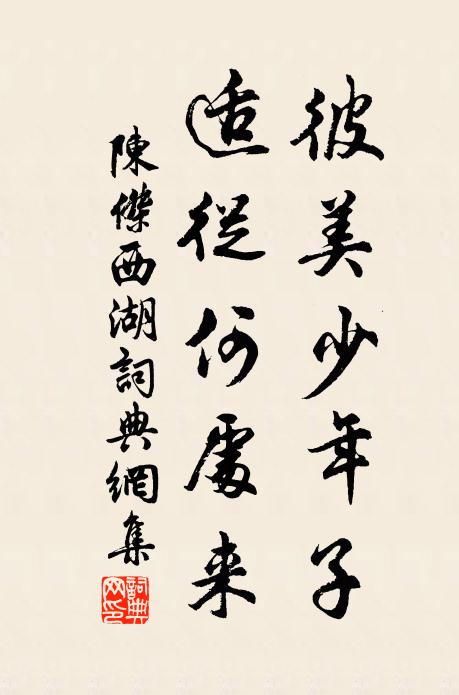 彼美少年子
适從何處来
陳傑西湖詞典網集
詞典网印